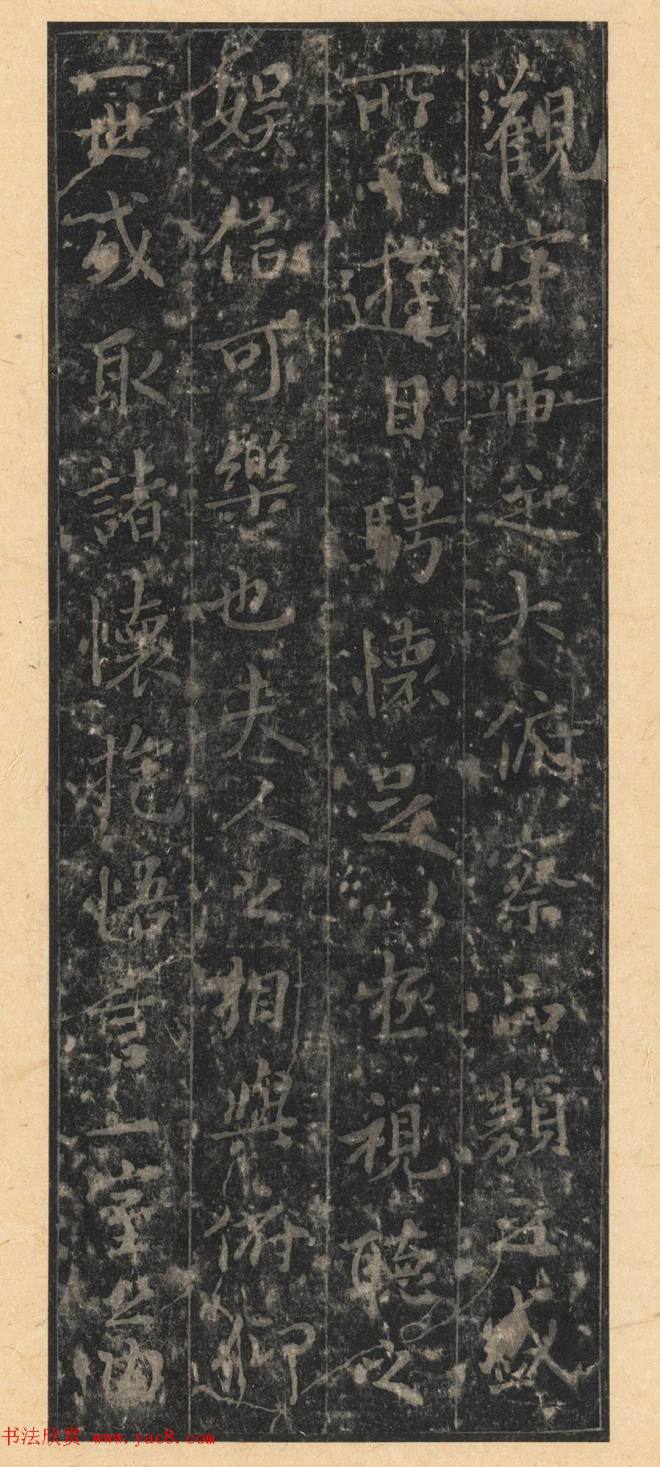 觀宇宙之大俯察品類之盛
所以遊目騁懷足以極視聽之
娛信可樂也夫人之相與俯仰
一世或取諸懷抱悟言一室之內
书法欣赏 www.yac8.com